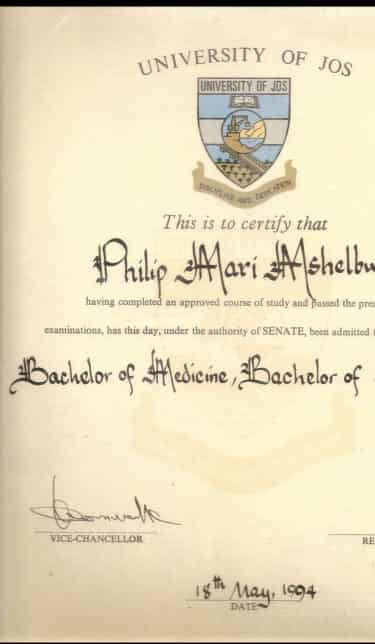 UNIVERSITY OF JOS
UNIVERSITY OF JOS
DISCIPLINE AND DEDICATION
This is to certify that
Philip Mari Mshelbw
having completed an approved course of study and passed the pres
examinations, has this day, under the authority of SENATE, been admitted
Bachelor of Medicine, Bachelor of
VICE-CHANCELLOR
RE
18th May, 1994
DATE